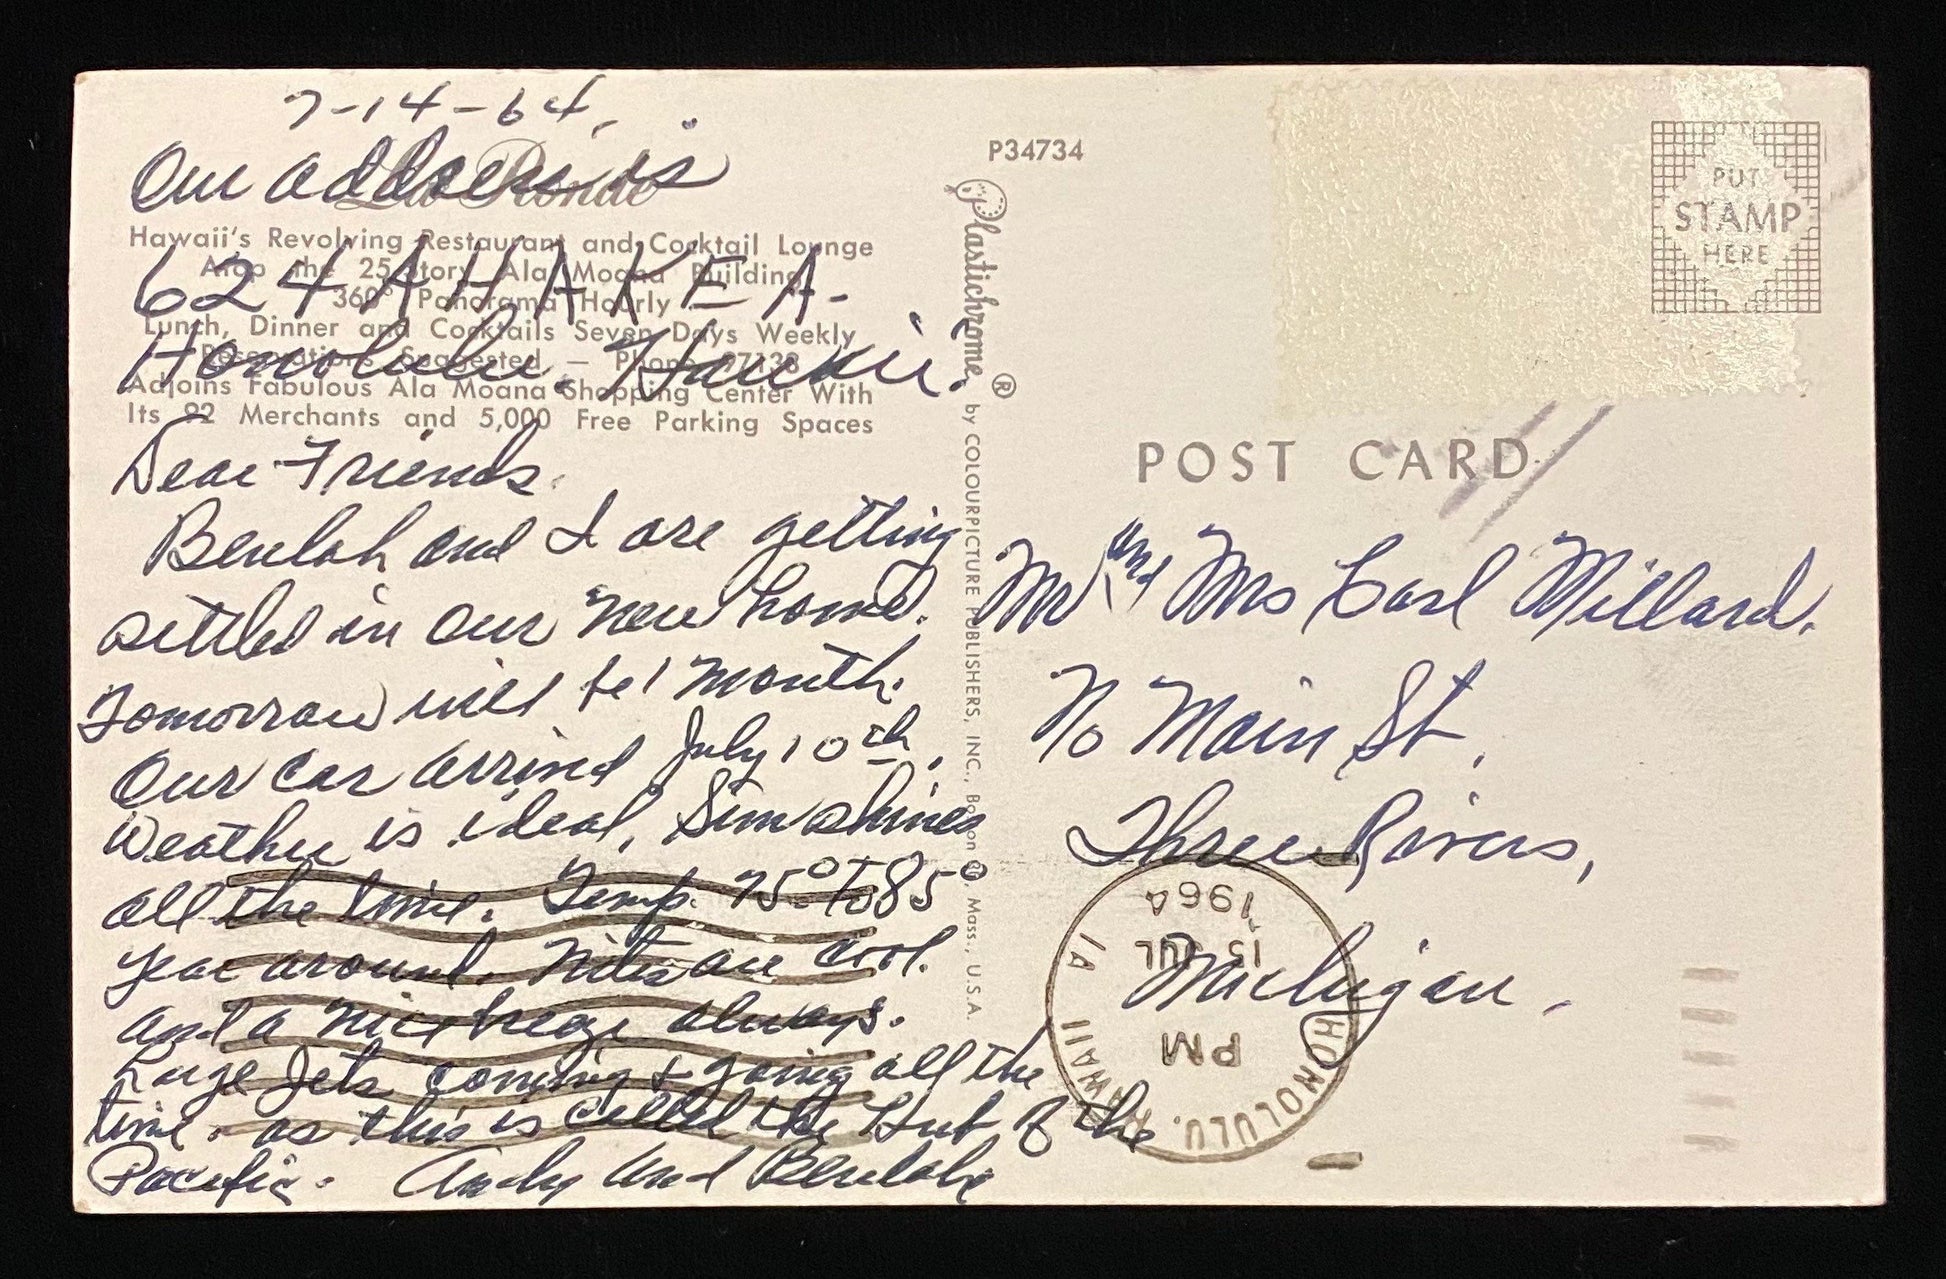 7-14-64.
Our address is
La Ronde
Hawaii's Revolving Restaurant and Cocktail Lounge
Atop the 25 Story Ala Moana Building
360° Panorama Hourly
Lunch, Dinner and Cocktails Seven Days Weekly
Reservations Suggested — Phone 97138
Adjoins Fabulous Ala Moana Shopping Center With
Its 92 Merchants and 5,000 Free Parking Spaces
624 AHAKEA-
Honolulu. Hawaii.
Dear Friends.
Beulah and I are getting
settled in our new home.
Tomorrow will be 1 month.
Our car arrived July 10th.
Weather is ideal, Sun shines
all the time. Temp. 75° to 85°
year around. Nites are cool.
and a nice breeze always.
Large Jets coming + going all the
time. as this is called the Hub of the
Pacific. Andy and Beulah
P34734
Plastichrome ® by COLOURPICTURE PUBLISHERS, INC., Boston, Mass., U.S.A
PUT
STAMP
HERE
POST CARD
Mr and Mrs Earl Millard.
No Main St.
Three Rivers,
Michigan.
HONOLULU, HAWAII 1A
PM
15 JUL
1964